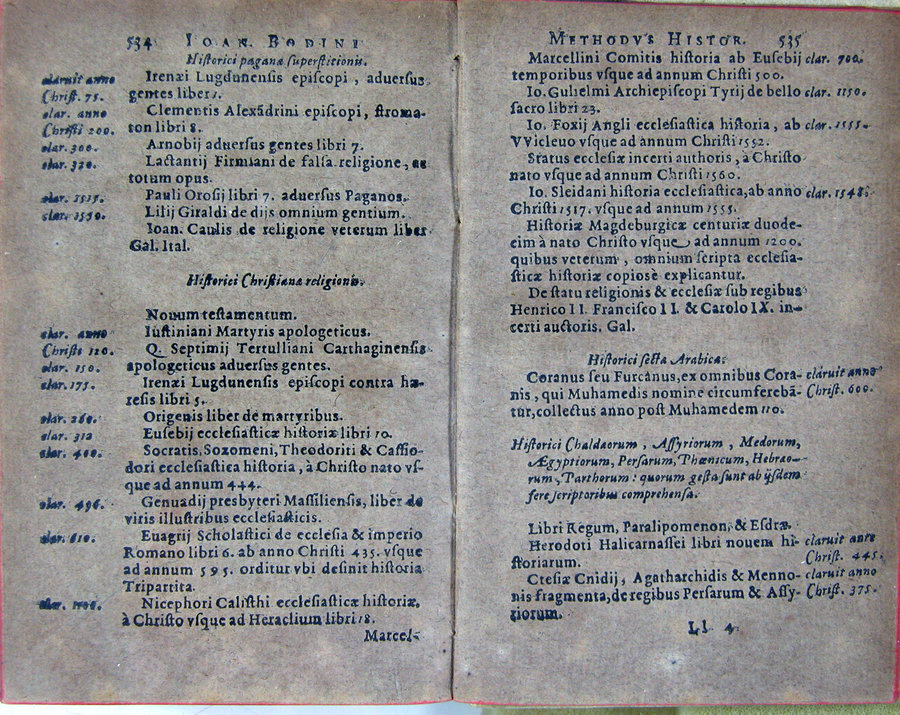 534 IOAN. BODINI
Historici paganæ superstitionis.
claruit anno Irenæi Lugdunensis episcopi, aduersus
Christ. 75. gentes liber 1.
clar. anno Clementis Alexãdrini episcopi, stroma-
Christi 200. ton libri 8.
clar. 300. Arnobij aduersus gentes libri 7.
clar. 320. Lactantij Firmiani de falsa religione, ac
totum opus.
Pauli Orosij libri 7. aduersus Paganos.
clar. 1550. Lilij Giraldi de dijs omnium gentium.
Ioan. Caulis de religione veterum liber
Gal. Ital.
Historici Christianæ religionis.
Nouum testamentum.
clar. anno Iustiniani Martyris apologeticus.
Christi 120. Q. Septimij Tertulliani Carthaginensis
clar. 150. apologeticus aduersus gentes.
clar. 175. Irenæi Lugdunensis episcopi contra hæ-
resis libri 5.
clar. 260. Origenis liber de martyribus.
clar. 312 Eusebij ecclesiasticæ historiæ libri 10.
clar. 400. Socratis, Sozomeni, Theodoriti & Cassio-
dori ecclesiastica historia, à Christo nato vs-
que ad annum 444.
clar. 496. Genuadij presbyteri Massiliensis, liber de
viris illustribus ecclesiasticis.
clar. 610. Euagrij Scholastici de ecclesia & imperio
Romano libri 6. ab anno Christi 435. vsque
ad annum 595. orditur vbi desinit historia
Tripartita.
clar. Nicephori Calisthi ecclesiasticæ historiæ,
à Christo vsque ad Heraclium libri 18.
Marcel-
METHODVS HISTOR. 535
Marcellini Comitis historia ab Eusebij clar. 700.
temporibus vsque ad annum Christi 500.
Io. Gulielmi Archiepiscopi Tyrij de bello clar. 1150.
sacro libri 23.
Io. Foxij Angli ecclesiastica historia, ab clar. 1555.
VVicleuo vsque ad annum Christi 1552.
Status ecclesiæ incerti authoris, à Christo
nato vsque ad annum Christi 1560.
Io. Sleidani historia ecclesiastica, ab anno clar. 1548.
Christi 1517. vsque ad annum 1555.
Historiæ Magdeburgicæ centuriæ duode-
cim à nato Christo vsque ad annum 1200.
quibus veterum, omnium scripta ecclesia-
sticæ historiæ copiosè explicantur.
De statu religionis & ecclesiæ sub regibus
Henrico II. Francisco II. & Carolo IX. in-
certi auctoris. Gal.
Historici sectæ Arabicæ.
Coranus seu Furcanus, ex omnibus Cora- claruit anno
nis, qui Muhamedis nomine circumferebã- Christ. 600.
tur, collectus anno post Muhamedem 110.
Historici Chaldæorum, Assyriorum, Medorum,
Ægyptiorum, Persarum, Phœnicum, Hebræo-
rum, Parthorum: quorum gesta sunt ab ijsdem
fere scriptoribus comprehensa.
Libri Regum, Paralipomenon, & Esdræ.
Herodoti Halicarnassei libri nouem hi- claruit anno
storiarum. Christ. 445.
Ctesiæ Cnidij, Agatharchidis & Menno- claruit anno
nis fragmenta, de regibus Persarum & Assy- Christ. 375.
riorum.
Ll 4